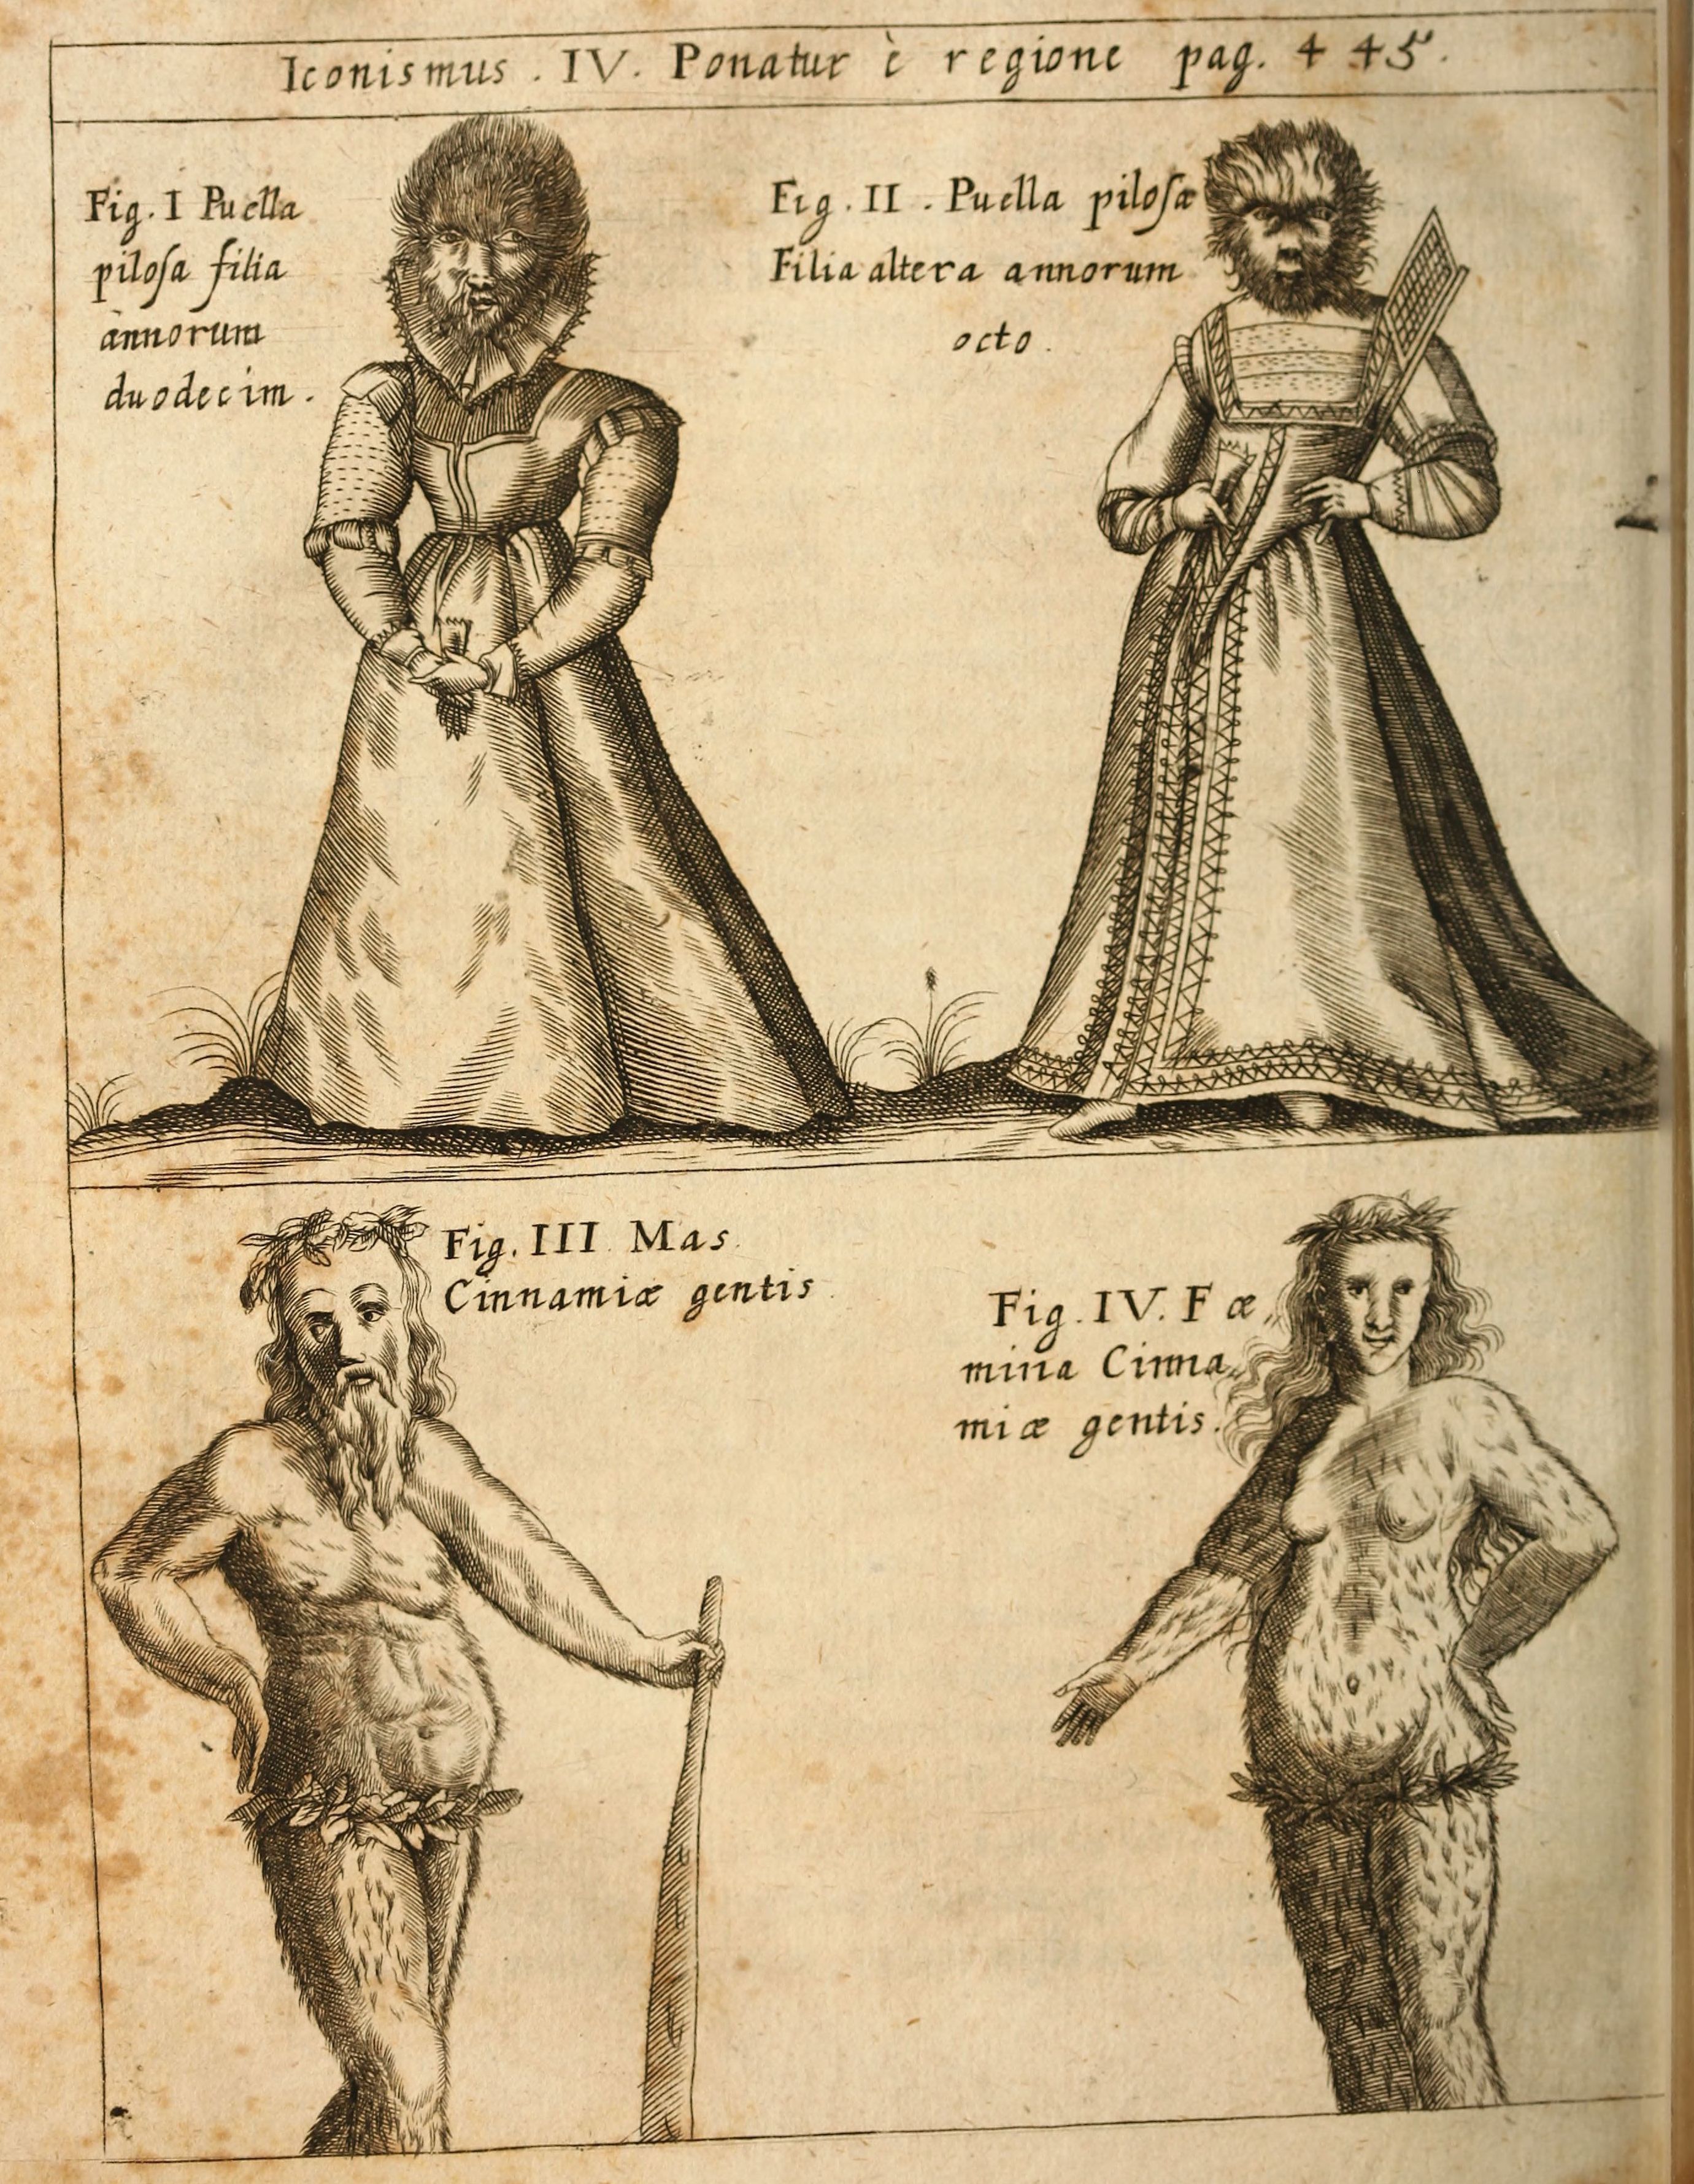 Iconismus . IV. Ponatur è regione pag. 445.
Fig. I Puella
piloſa filia
annorum
duodecim .
Fig. II . Puella piloſæ
Filia altera annorum
octo .
Fig. III Mas
Cinnamiæ gentis
Fig. IV. Fæ,
mina Cinna,
miæ gentis.